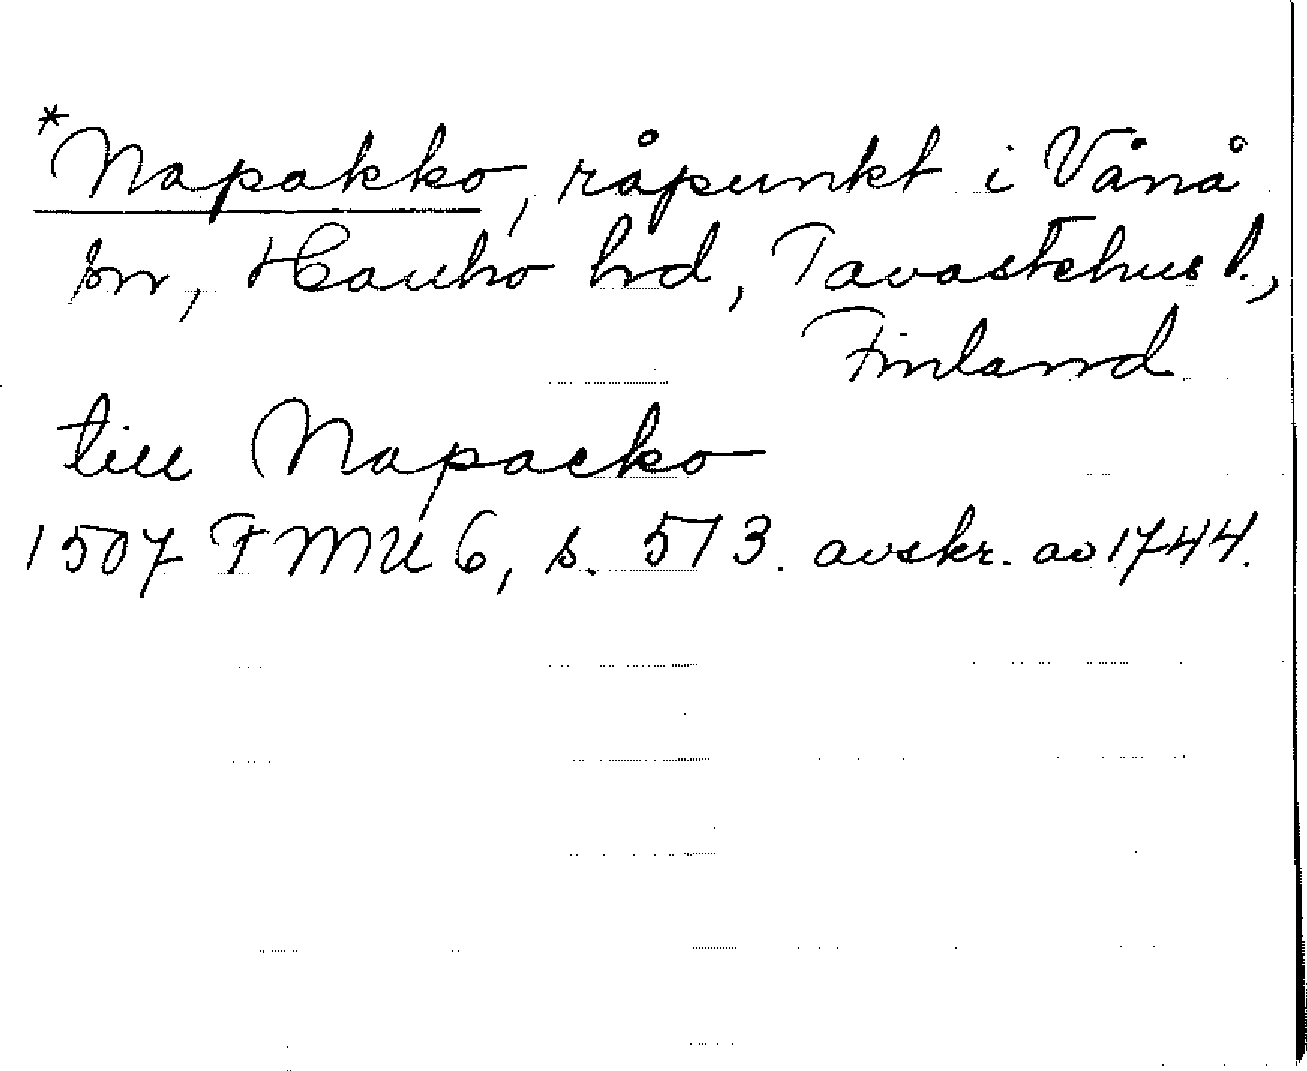 *Napakko, råpunkt i Vånå
sn, Hauho hd, Tavastehus l.,
Finland
till Napacko
1507 FMU 6, s. 573. avskr. av 1744.